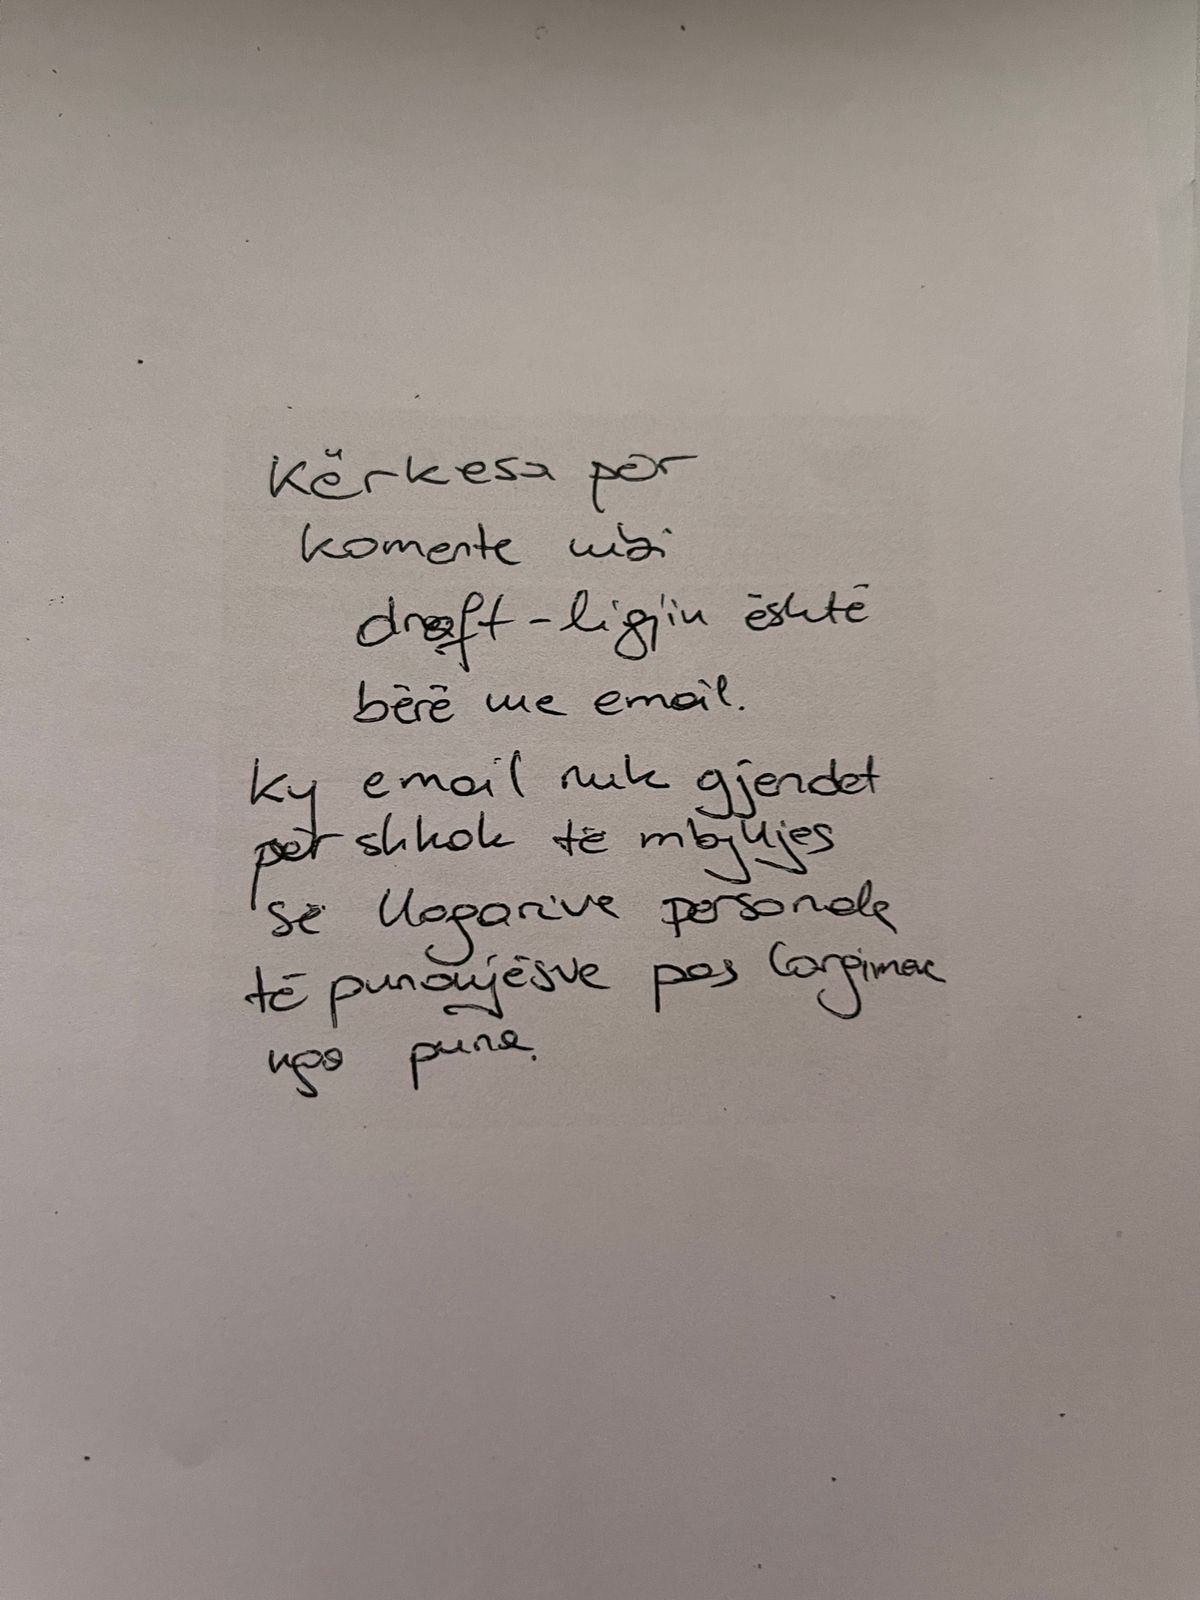 Kërkesa për
komente mbi
draft-ligjin është
bërë me email.
Ky email nuk gjendet
për shkak të mbylljes
së llogarive personale
të punonjësve pas largimeve
nga puna.